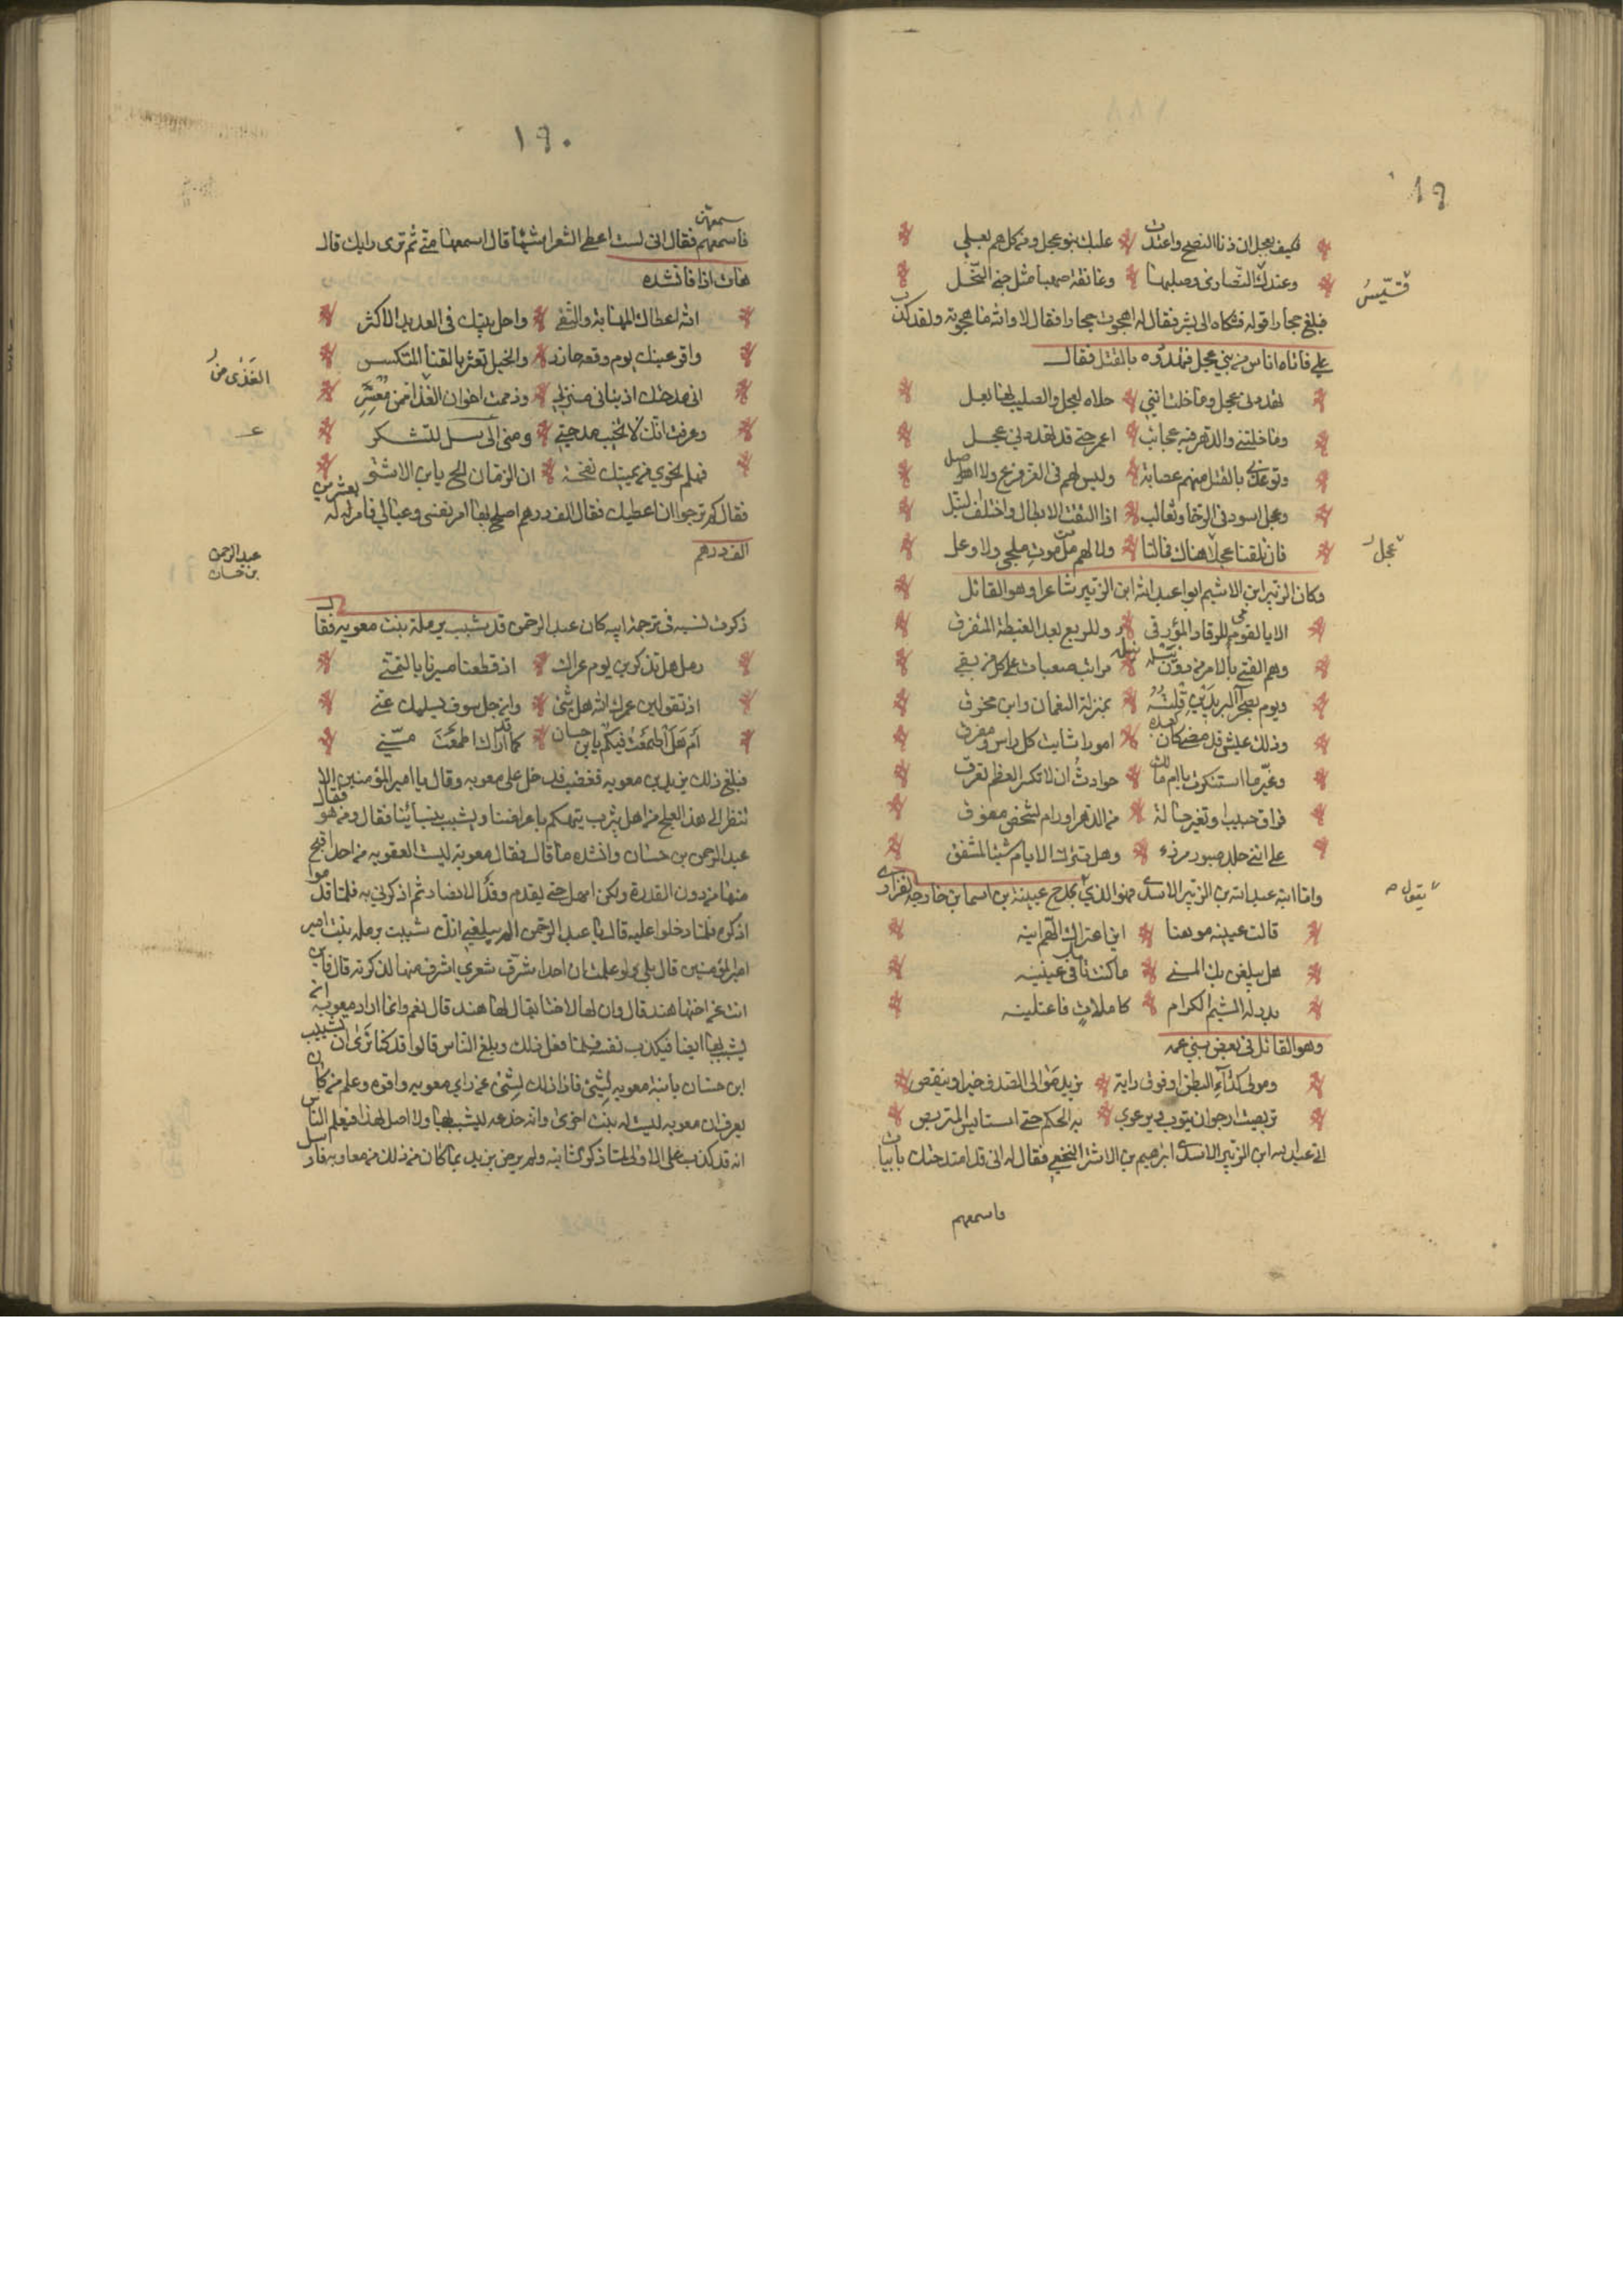 فكيف بعجل ان دنا الفصح واغتدت علیك بنو عجل ومرجلهم يغلي
وعندك النصارى وصليبها وعانقة صهبا مثل جنى النحل
قسيس
فبلغ حجارا قوله فشكاه الى بشر فقال له اهجوت حجارا فقال لا والله ما هجوته ولقد كذب
علي فاتاه اناس من بني عجل فتهددوه بالقتل فقال
تهددني عجل وما خلت انني خلاه لعجل والصليب لها بعل
وما خلتني والدهر فيه عجائب اعمر حتى قد تهددني عجل
وتوعدني بالقتل منهم عصابة وليس لهم في العز فرع ولا اصل
وعجل اسود في الرخا وثعالب اذا التقت الابطال واختلف النبل
فان تلقنا عجل هناك فمالنا ولا لهم م الموت ملجى ولا وعل
عجل
وكان الزبير ابن الاشيم ابوا عبد الله ابن الزبير شاعرا وهو القائل
الا يا لقومي للرقاد المؤرق وللربع بعد الغبطة المتفرق
وهم الفتى بالامر من دون نيله مراتب صعبات على كل مرتقي
ويوم بصحرآ البريدين قلته بمنزلة النعمان وابن محرق
وذلك عيش قد مضى كان بعده امور اشابت كل راس ومفرق
وغير ما استنكرت يا ام مالك حوادث ان لا تكسر العظم تعرق
فراق حبيب او تغير حالة من الدهر او رام لشخصي مفوق
على انني جلد صبور مرزء وهل تترك الايام شيئا لمشفق
واما ابنه عبد الله بن الزبير الاسدي فهو الذي يمدح عيينة بن اسما بن خارجه الفزاري
يقول
قالت عيينه موهنا اين اعتراك الهم اينه
هل يبلغن بك المنى ما كنت تامل في عيينه
بدر له الشيم الكرام كاملات فاعتلينه
وهو القائل في بعض بني عمه
ومولى كداء البطن او فوق دايه يزيد موالى الصدق خيرا وينقص
تربصت ارجوان يتوب ويرعوي به الحكم حتى استايس المتربص
اتى عبد الله ابن الزبير الاسدي ابرهيم بن الاشتر النخعي فقال له اني قد امتدحتك بابيات
فاسمعهم
١٩٠
فاسمعهم فقال اني لست اعطي الشعرا شيئا قال اسمعها مني ثم ترى رايك قال
سمعهن
هات اذا فانشده
الله اعطاك المهابة والتقى واحل بيتك في العديد الاكثر
واقر عينك يوم وقعه خازر والخيل تعثر بالقنا المتكسر
اني مدحتك اذ نبا بي منزلي وذممت اخوان الغذا من معشر
الغنى من
وعرفت انك لا تخيب مدحتي ومتى الى بسبيل للتشكر
فهلم نحوي من يمينك نفحة ان الزمان الح يا بن الاشتر
فقال كم ترجوا ان اعطيك فقال الف درهم اصلح بها امر نفسي وعيالي فامر له بعشرين
الف درهم
عبد الرحمن
بن حسان
ذكرت نسبه في ترجمة ابيه كان عبد الرحمن قد يشبب برمله بنت معويه فقال
رمل هل تذكرين يوم غزال اذ قطعنا مسيرنا بالتمني
اذ تقولين عمرك الله هل شيء وان جل سوف يسليك عني
ام هل اطمعت فيكم يا بن حسان كما قد اراك اطمعت مني
فبلغ ذلك يزيد بن معويه فغضب فدخل على معويه وقال يا امير المؤمنين الا
تنظر الى هذا العلج من اهل يثرب يتهكم باعراضنا ويشبب بنسائنا فقال ومن هو فقال
عبد الرحمن بن حسان وانشده ما قال فقال معوية ليست العقوبه من احد اقبح
منها من دون القدرة ولكن امهل حتى يقدم وفد الانصار ثم اذكرني به فلما قدموا
اذكره فلما دخلوا عليه قال يا عبد الرحمن الم يبلغني انك شببت برمله بنت امير
امير المؤمنين قال بلى ولو علمت ان احدا شرف شعري اشرف منها لذكرته قال فاين
انت عن اختها هند قال وان لها لاختا يقال لها هند قال نعم وانما اراد معويه انه
يشبب بها ايضا فيكذب نفسه فلما فعل ذلك وبلغ الناس قالوا قد كنا نرى ان تشبيب
ابن حسان بابنة معويه لشيئ فاذا ذلك لشيئ عن راي معويه واقره وعلم من كان
يعرف ان معويه ليست له بنت اخرى وانه خدعه ليشبب بها ولا اصل لها فيعلم الناس
انه قد كذب على الاولى لما ذكر الثانيه ولم يرض يزيد بما كان من ذلك من معاويه فارسل